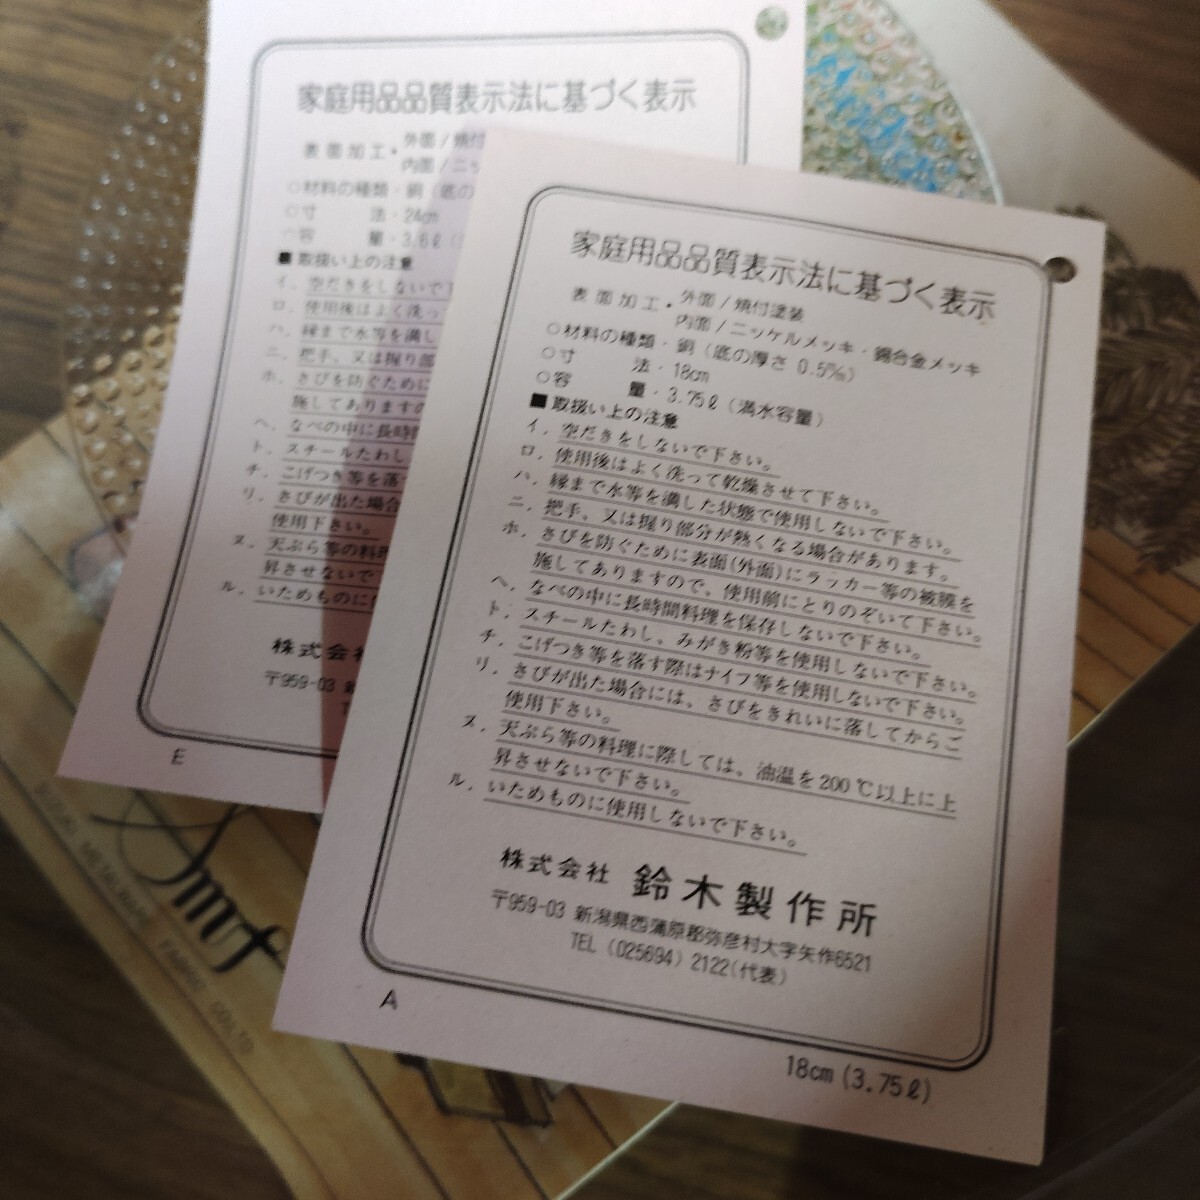 家庭用品品質表示法に基づく表示
表面加工・外面/焼付
内面/ニッ
○材料の種類・銅(底の
○寸 法・24cm
○容 量・3.6ℓ
■取扱い上の注意
イ．空だきをしないで下
ロ．使用後はよく洗っ
ハ．縁まで水等を満し
ニ．把手、又は握り部
ホ．さびを防ぐために
施してありますの
ヘ．なべの中に長時間
ト．スチールたわし
チ．こげつき等を落
リ．さびが出た場合
使用下さい。
ヌ．天ぷら等の料理
昇させないで
ル．いためものに
株式会
〒959-03 新
E
家庭用品品質表示法に基づく表示
表面加工・外面/焼付塗装
内面/ニッケルメッキ・錫合金メッキ
○材料の種類・銅(底の厚さ 0.5㎜)
○寸 法・18cm
○容 量・3.75ℓ(満水容量)
■取扱い上の注意
イ．空だきをしないで下さい。
ロ．使用後はよく洗って乾燥させて下さい。
ハ．縁まで水等を満した状態で使用しないで下さい。
ニ．把手、又は握り部分が熱くなる場合があります。
ホ．さびを防ぐために表面(外面)にラッカー等の被膜を
施してありますので、使用前にとりのぞいて下さい。
ヘ．なべの中に長時間料理を保存しないで下さい。
ト．スチールたわし、みがき粉等を使用しないで下さい。
チ．こげつき等を落す際はナイフ等を使用しないで下さい。
リ．さびが出た場合には、さびをきれいに落してからご
使用下さい。
ヌ．天ぷら等の料理に際しては、油温を200℃以上に上
昇させないで下さい。
ル．いためものに使用しないで下さい。
株式会社 鈴木製作所
〒959-03 新潟県西蒲原郡弥彦村大字矢作6521
TEL (025694) 2122(代表)
A
18cm (3.75ℓ)